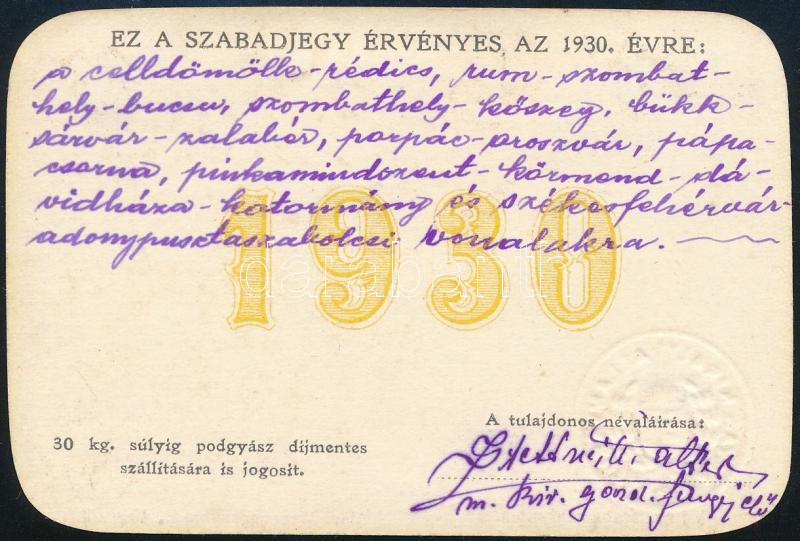 EZ A SZABADJEGY ÉRVÉNYES AZ 1930. ÉVRE:
a celldömölk-rédics, rum-szombat-
hely-bucsu, szombathely-kőszeg, bükk-
sárvár-zalabér, porpác-oroszvár, pápa-
csorna, pinkamindszent-körmend-dá-
vidháza-kotormány és székesfehérvár-
adonypusztaszabolcsi vonalakra.
1930
A tulajdonos névaláirása:
30 kg. súlyig podgyász dijmentes
szállítására is jogosit.
m. kir. gond.